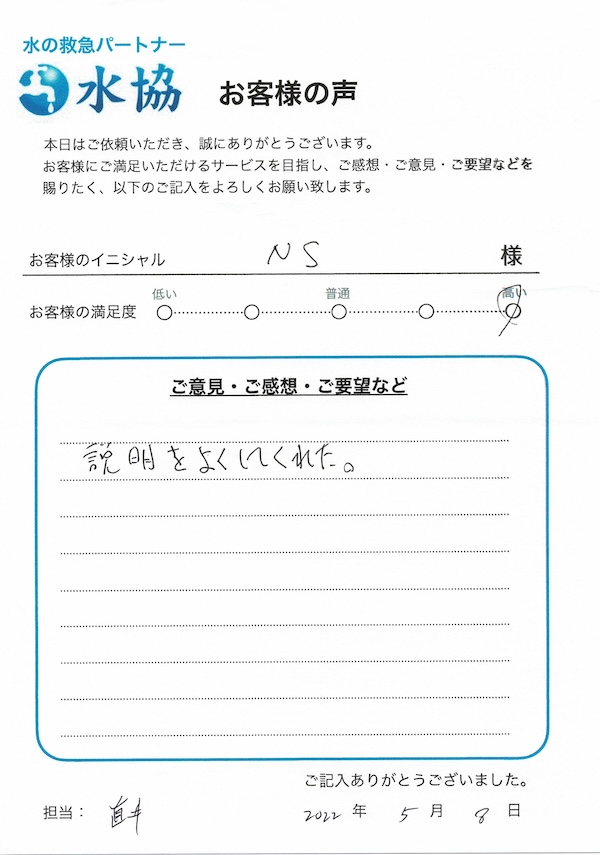 水の救急パートナー
水協 お客様の声
本日はご依頼いただき、誠にありがとうございます。
お客様にご満足いただけるサービスを目指し、ご感想・ご意見・ご要望などを
賜りたく、以下のご記入をよろしくお願い致します。
お客様のイニシャル NS 様
低い 普通 高い
お客様の満足度
ご意見・ご感想・ご要望など
説明をよくしてくれた。
ご記入ありがとうございました。
担当: 直井 2022年 5月 8日